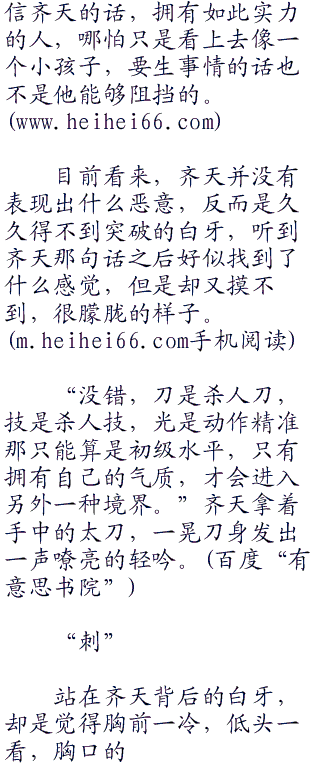 信齐天的话，拥有如此实力
的人，哪怕只是看上去像一
个小孩子，要生事情的话也
不是他能够阻挡的。
(www.heihei66.com)
目前看来，齐天并没有
表现出什么恶意，反而是久
久得不到突破的白牙，听到
齐天那句话之后好似找到了
什么感觉，但是却又摸不
到，很朦胧的样子。
(m.heihei66.com手机阅读)
“没错，刀是杀人刀，
技是杀人技，光是动作精准
那只能算是初级水平，只有
拥有自己的气质，才会进入
另外一种境界。”齐天拿着
手中的太刀，一晃刀身发出
一声嘹亮的轻吟。(百度“有
意思书院”)
“刺”
站在齐天背后的白牙，
却是觉得胸前一冷，低头一
看，胸口的